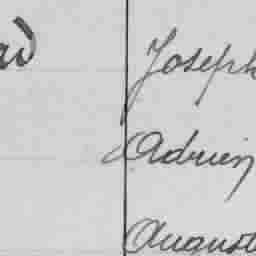 Joseph
Adrien
August